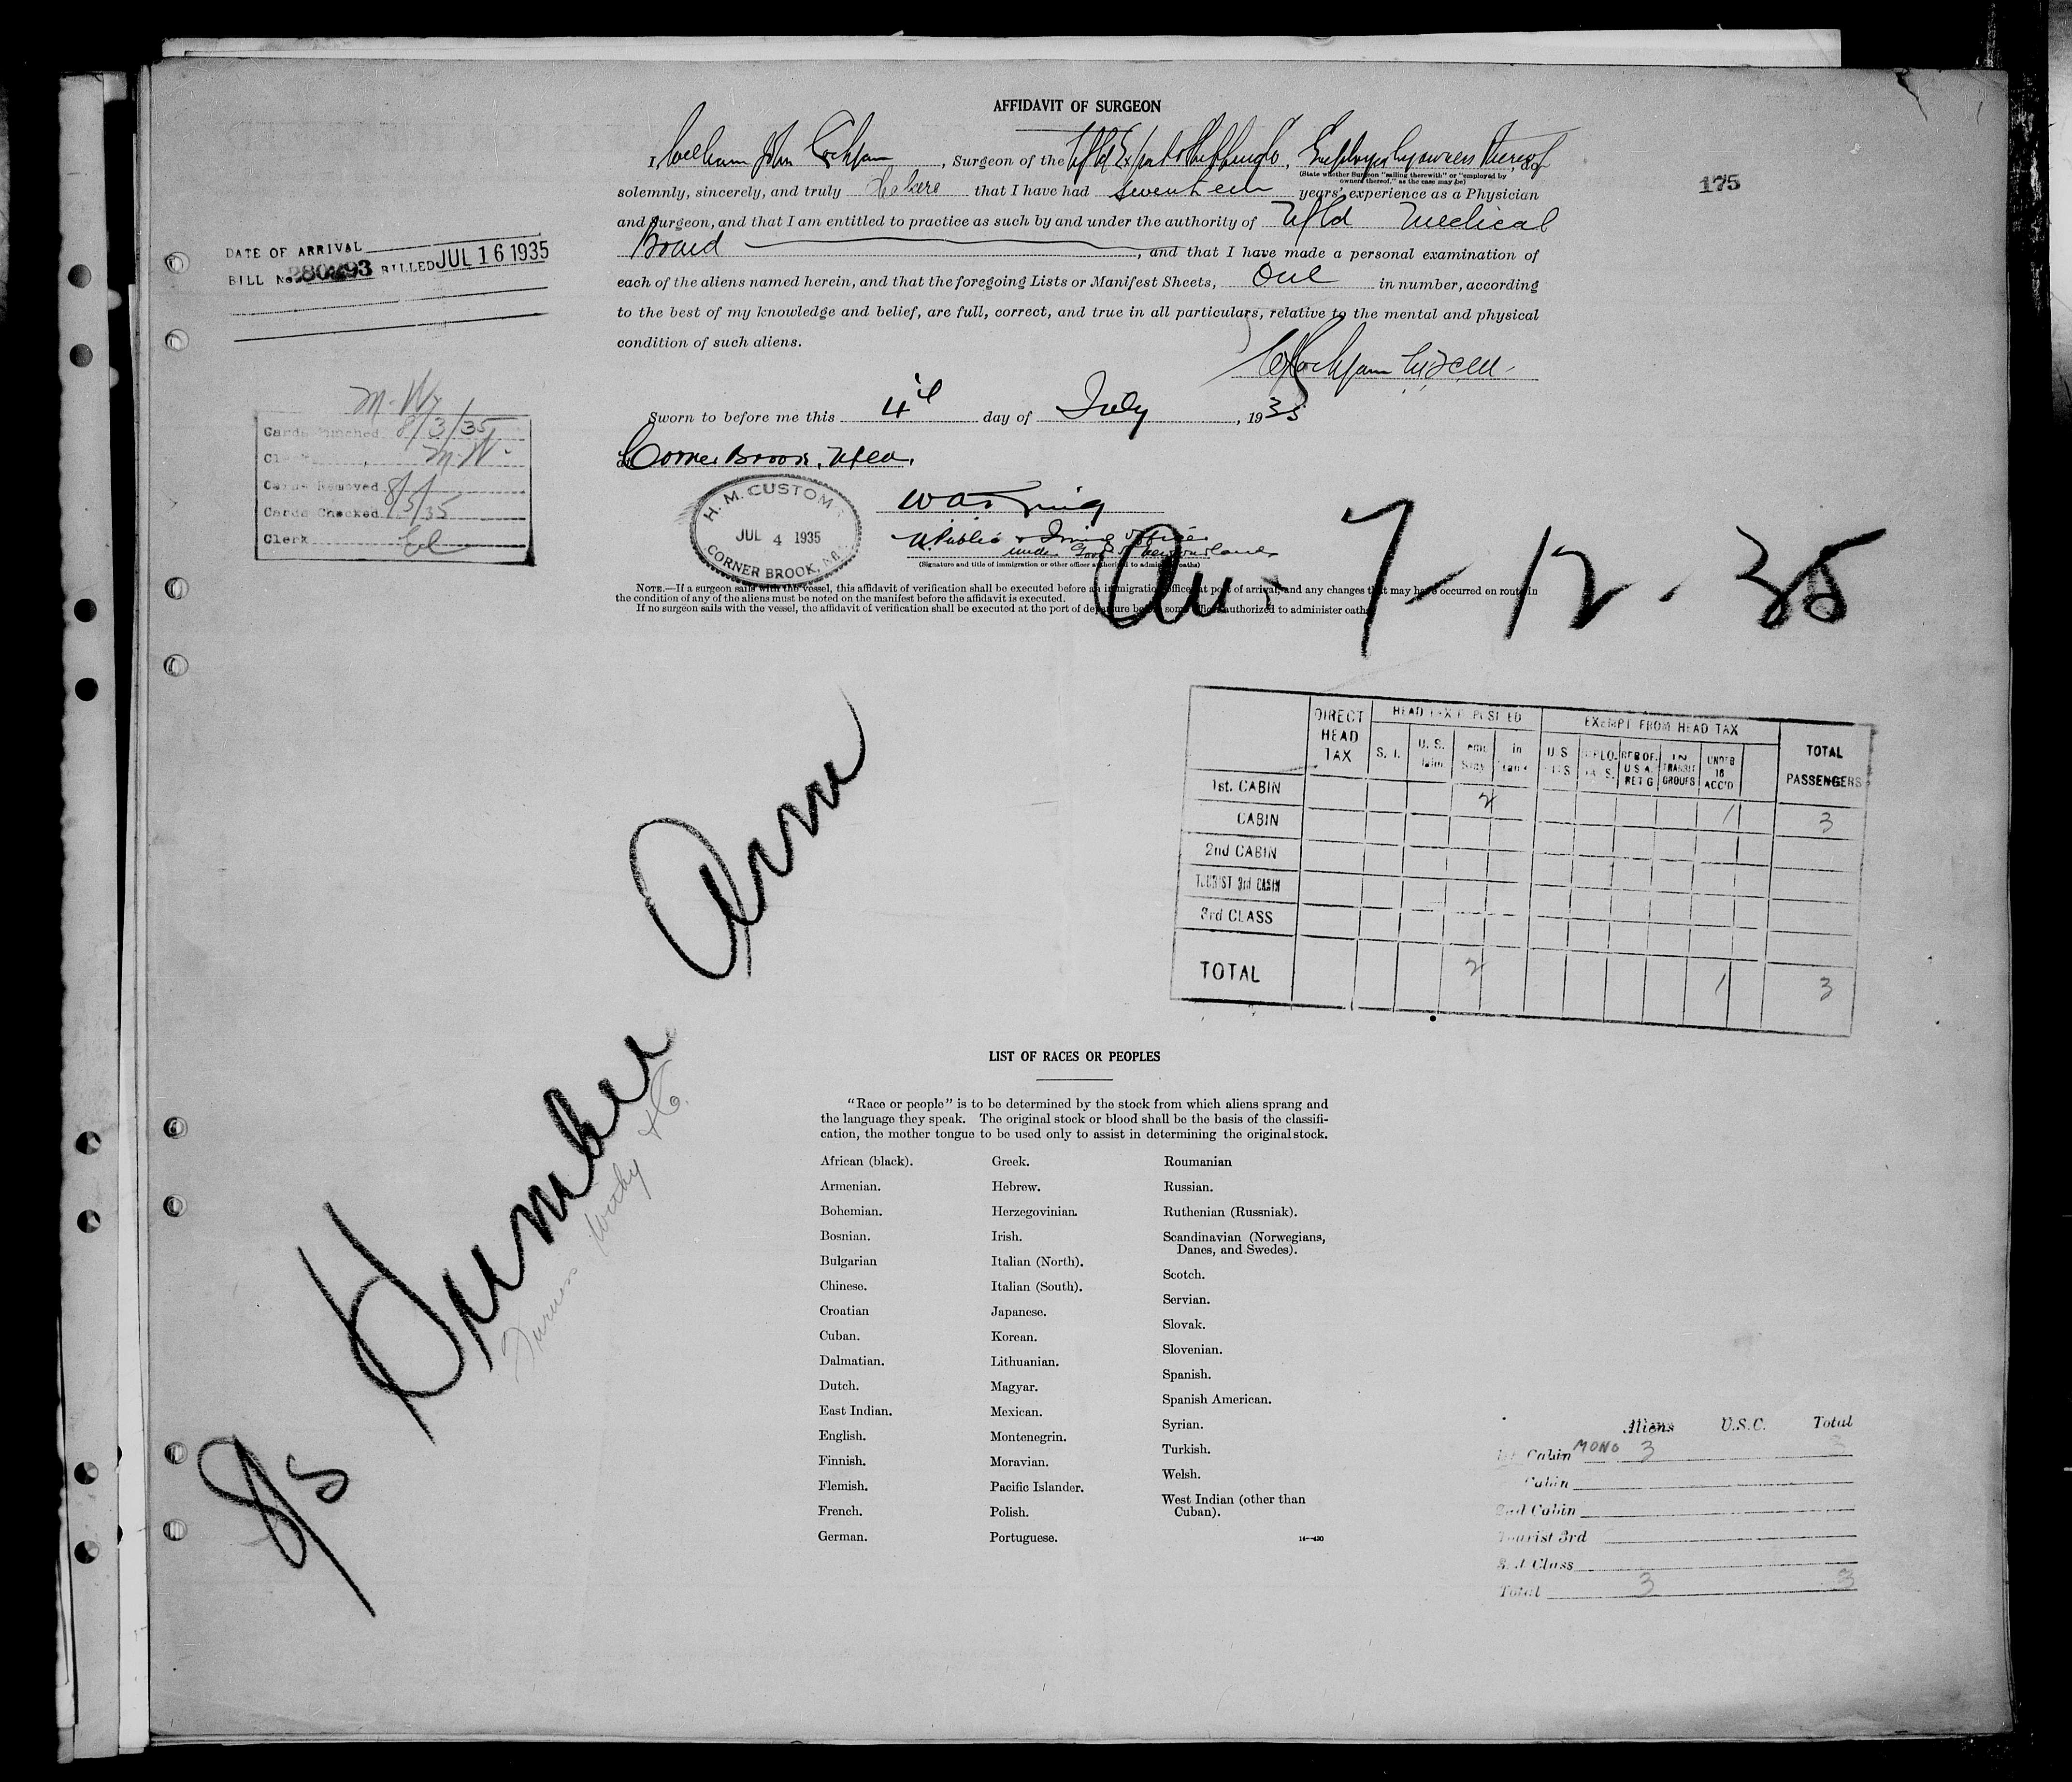 AFFIDAVIT OF SURGEON
I, William John , Surgeon of the Employed by owners thereof, do
(State whether Surgeon "sailing therewith" or "employed by
owners thereof," as the case may be)
solemnly, sincerely, and truly that I have had seventeen years' experience as a Physician
175
and Surgeon, and that I am entitled to practice as such by and under the authority of Nfld Medical
Board , and that I have made a personal examination of
DATE OF ARRIVAL
BILL No. BILLED JUL 16 1935
each of the aliens named herein, and that the foregoing Lists or Manifest Sheets, One in number, according
to the best of my knowledge and belief, are full, correct, and true in all particulars, relative to the mental and physical
condition of such aliens.
M.W.
Cards Punched 8/3/35
M.W.
Cards Removed
Cards Checked 8/5/35
Clerk
Sworn to before me this 4th day of July, 1935
at Corner Brook, Nfld.
H. M. CUSTOM
JUL 4 1935
CORNER BROOK,
N. Public
under Govt of Newfoundland
(Signature and title of immigration or other officer authorized to administer oaths)
NOTE.—If a surgeon sails with the vessel, this affidavit of verification shall be executed before an immigration officer at port of arrival, and any changes that may have occurred on route in
the condition of any of the aliens must be noted on the manifest before the affidavit is executed.
If no surgeon sails with the vessel, the affidavit of verification shall be executed at the port of departure before some officer authorized to administer oaths.
7-12-35
DIRECT HEAD TAX
HEAD TAX DEPOSITED
EXEMPT FROM HEAD TAX
TOTAL PASSENGERS
S. I.
U. S.
in
U S
IN TRANSIT GROUPS
UNDER 16 ACC'D
1st. CABIN 2 1 3
CABIN
2nd CABIN
TOURIST 3rd CABIN
3rd CLASS
TOTAL 2 1 3
S/S Humber Arm
Furness Withy & Co.
LIST OF RACES OR PEOPLES
"Race or people" is to be determined by the stock from which aliens sprang and
the language they speak. The original stock or blood shall be the basis of the classifi-
cation, the mother tongue to be used only to assist in determining the original stock.
African (black).
Armenian.
Bohemian.
Bosnian.
Bulgarian
Chinese.
Croatian
Cuban.
Dalmatian.
Dutch.
East Indian.
English.
Finnish.
Flemish.
French.
German.
Greek.
Hebrew.
Herzegovinian.
Irish.
Italian (North).
Italian (South).
Japanese.
Korean.
Lithuanian.
Magyar.
Mexican.
Montenegrin.
Moravian.
Pacific Islander.
Polish.
Portuguese.
Roumanian
Russian.
Ruthenian (Russniak).
Scandinavian (Norwegians,
Danes, and Swedes).
Scotch.
Servian.
Slovak.
Slovenian.
Spanish.
Spanish American.
Syrian.
Turkish.
Welsh.
West Indian (other than
Cuban).
14—430
Aliens U.S.C. Total
1st Cabin MONO 3 3
Cabin
2nd Cabin
Tourist 3rd
3rd Class
Total 3 3